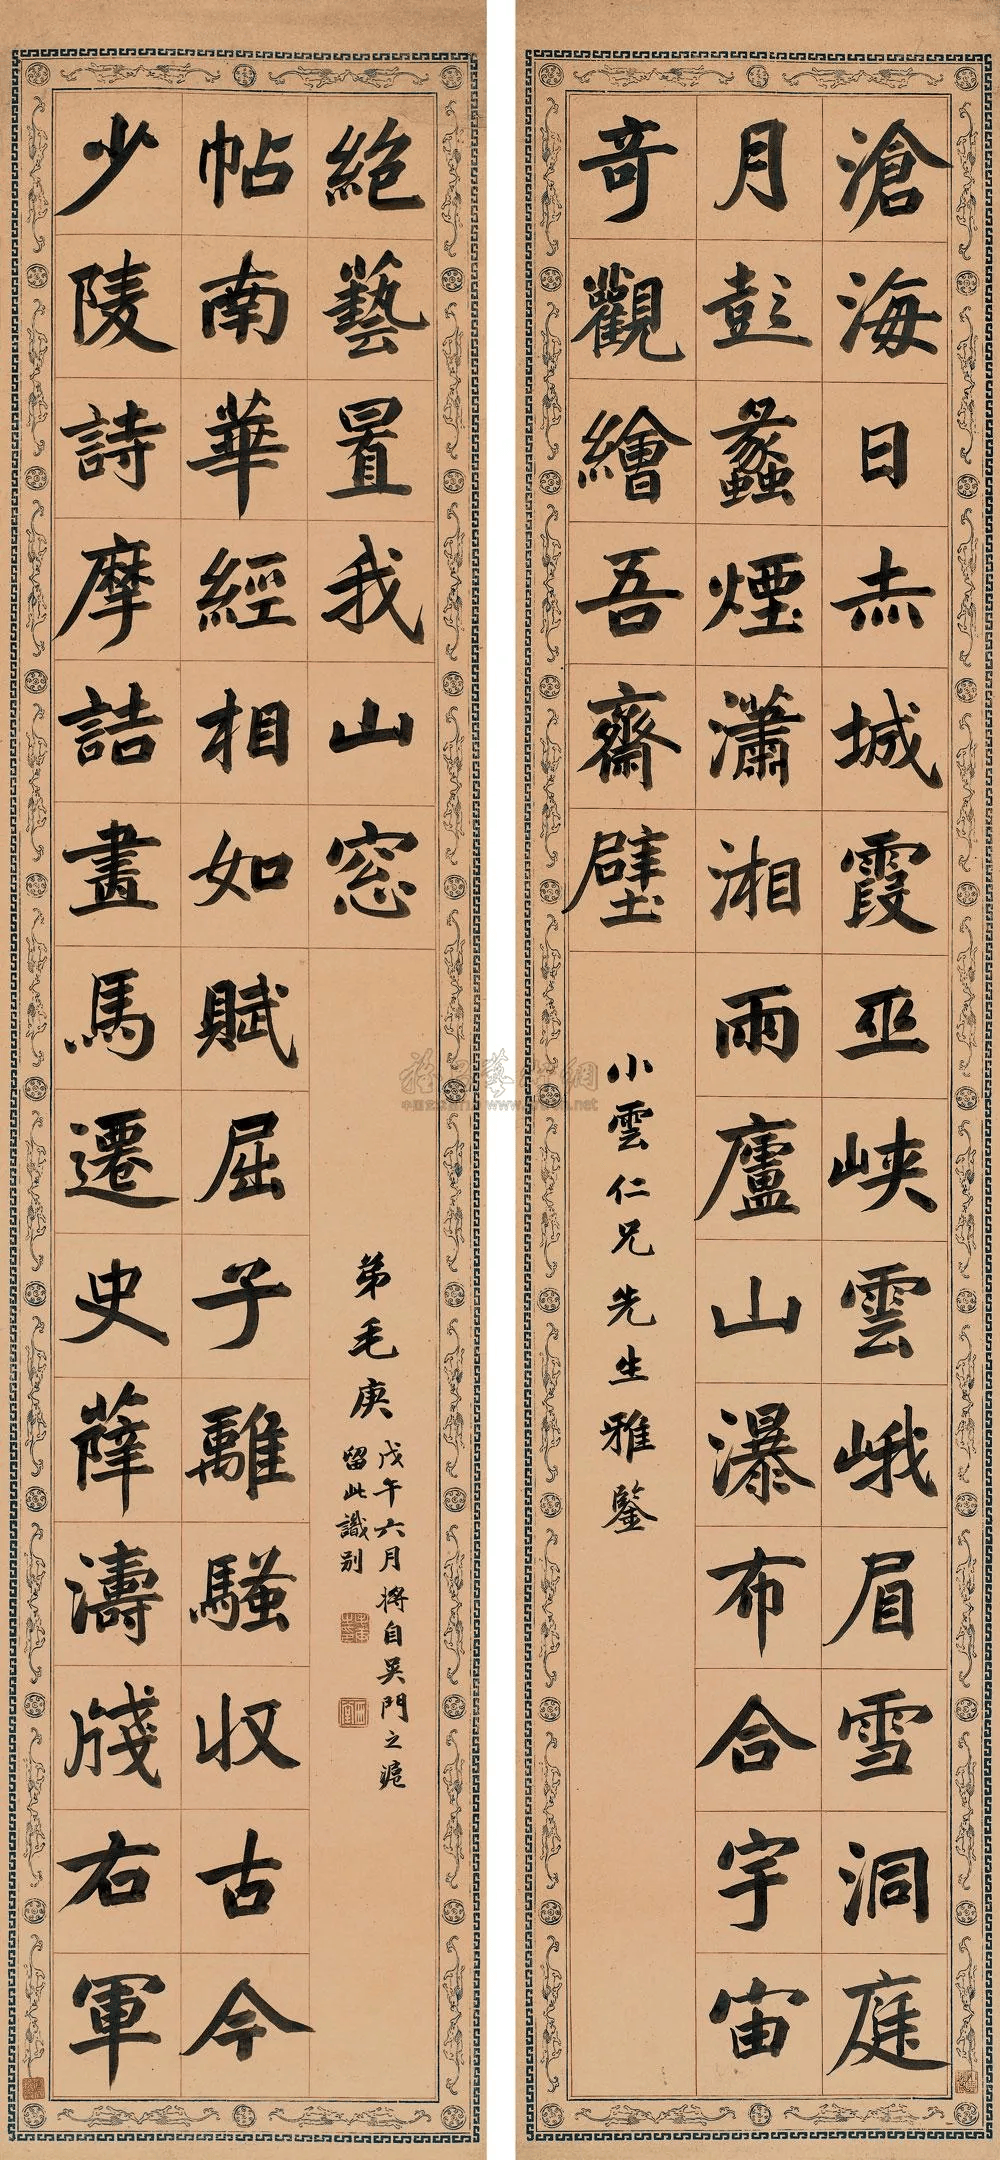 滄海日赤城霞巫峽雲峨眉雪洞庭
月彭蠡煙瀟湘雨廬山瀑布合宇宙
奇觀繪吾齋壁
小雲仁兄先生雅鑒
少陵詩摩詰畫馬遷史薛濤牋右軍
帖南華經相如賦屈子離騷收古今
絕藝置我山窓
弟毛庚
戊午六月將自吳門之滬
留此識別